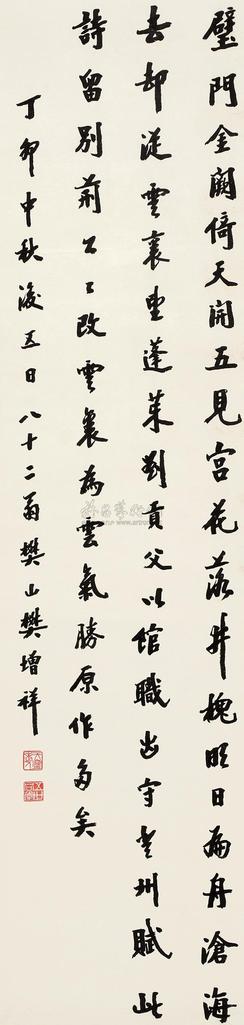 璧門金闕倚天開五見宮花落井槐明日扁舟滄海
去却從雲裏望蓬萊劉貢父以館職出守登州賦此
詩留別荊公公改雲裏為雲氣勝原作多矣
丁卯中秋後五日八十二翁樊山樊增祥